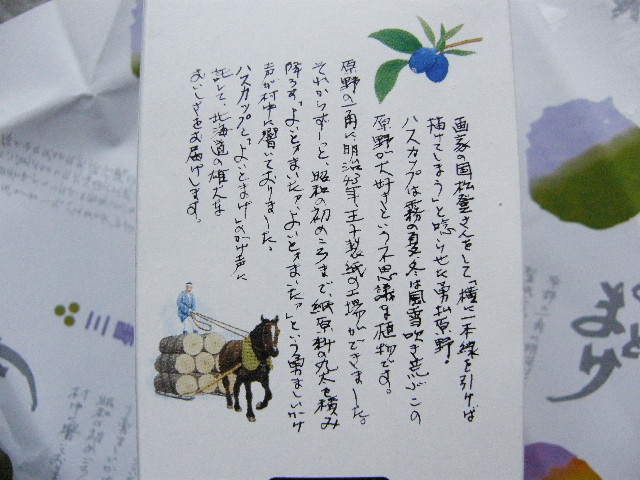 画家の国松登さんをして「横に一本線を引けば
描けてしまう」と唸らせた勇払原野。
ハスカップは霧の夏、冬は風雪吹き荒ぶこの
原野が大好きという不思議な植物です。
原野の一角に明治43年王子製紙の工場ができました。
それからずーっと、昭和の初めころまで紙原料の丸太を積み
降ろす「よいとォまいたァ」「よいとォまいたァ」という勇ましいかけ
声が村中に響いておりました。
ハスカップと「よいとまけ」のかけ声に
託して、北海道の雄大な
おいしさをお届けします。
三